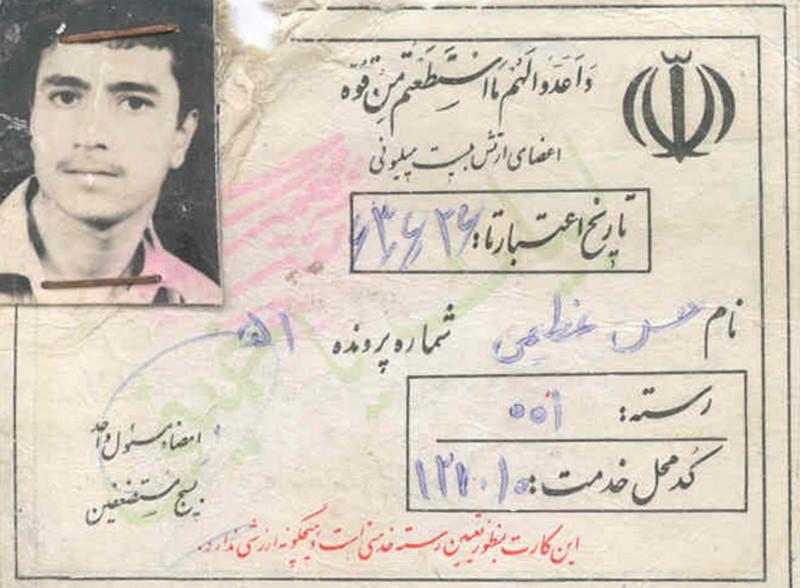 وَاَعِدّوا لَهُم مَا اسْتَطَعْتُم مِن قُوَّه
اعضای ارتش بیست میلیونی
تاریخ اعتبار تا:
نام حسن عظیمی شماره پرونده ۵۱
رسته: ۰۰۱
کد محل خدمت:
امضاء مسئول واحد
بسیج مستضعفین
این کارت بمنظور تعیین رسته خدمتی است و هیچگونه ارزشی ندارد.